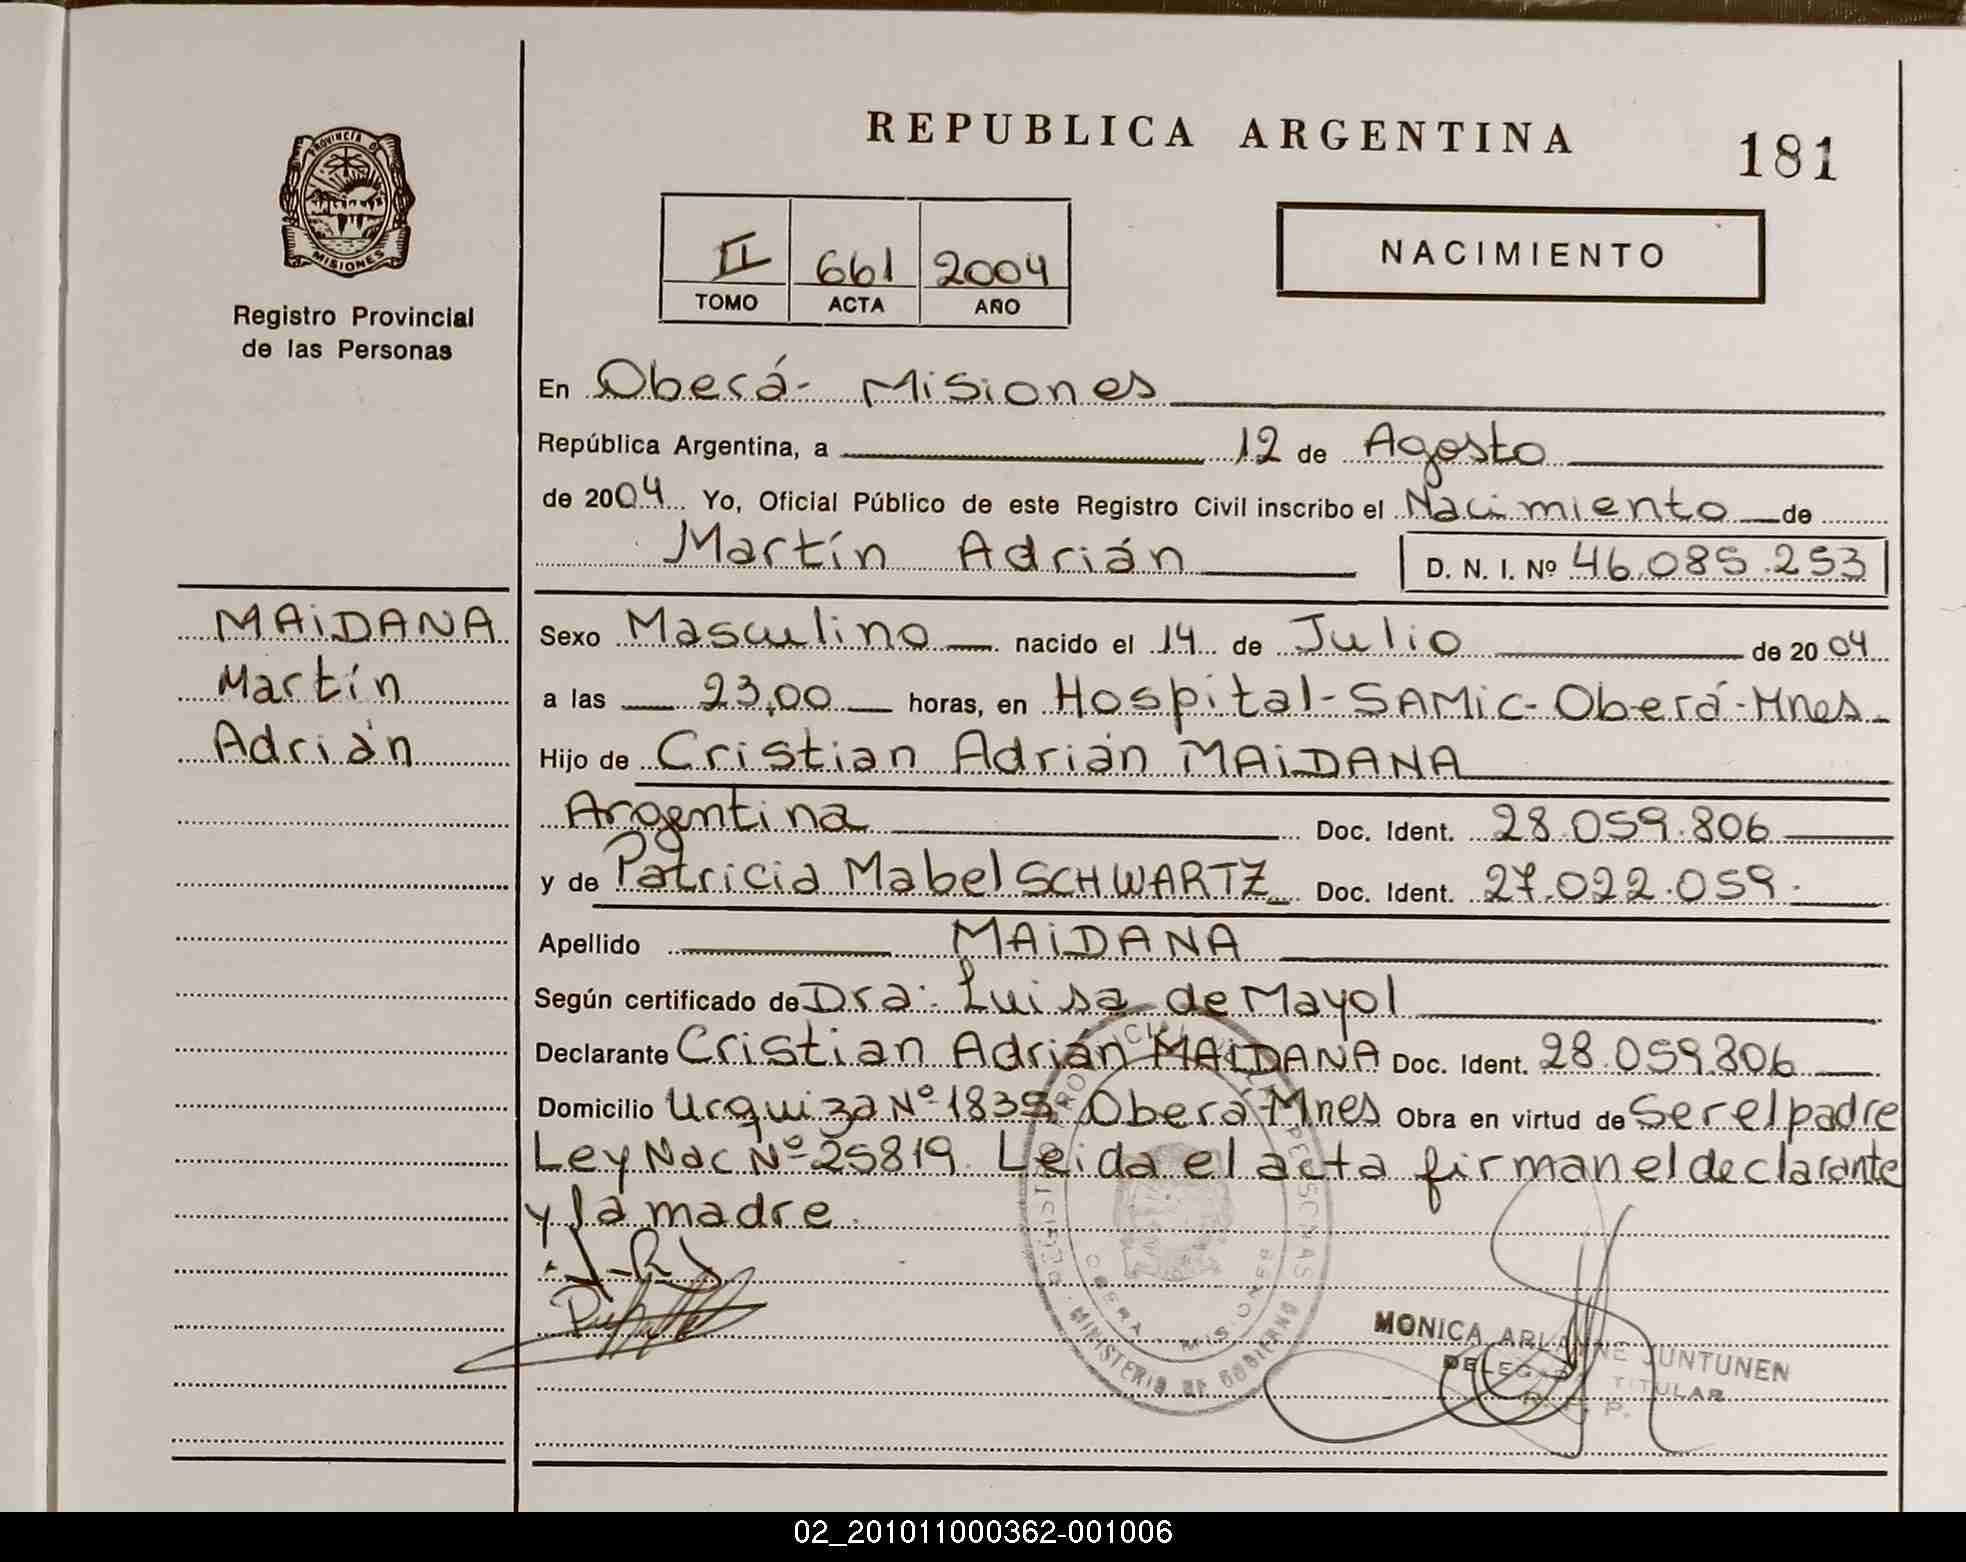 REPUBLICA ARGENTINA
181
PROVINCIA DE
MISIONES
Registro Provincial
de las Personas
II 661 2004
TOMO ACTA AÑO
NACIMIENTO
En Oberá- Misiones
República Argentina, a 12 de Agosto
de 2004 Yo, Oficial Público de este Registro Civil inscribo el Nacimiento de
Martín Adrián D. N. I. Nº 46.085.253
MAiDANA
Martín
Adrián
Sexo Masculino nacido el 14 de Julio de 2004
a las 23,00 horas, en Hospital-SAMic-Oberá-Mnes-
Hijo de Cristian Adrián MAiDANA
Argentina Doc. Ident. 28.059.806
y de Patricia Mabel SCHWARTZ Doc. Ident. 27.022.059.
Apellido MAiDANA
Según certificado de Dra. Luisa de Mayol
Declarante Cristian Adrián MAiDANA Doc. Ident. 28.059.806
Domicilio Urquiza Nº 1835 Oberá-Mnes Obra en virtud de Ser el padre
Ley Nac Nº 25819. Leida el acta firman el declarante
y la madre.
MINISTERIO DE GOBIERNO
OBERA - MISIONES
MONICA ARIANNE JUNTUNEN
DELEGADA TITULAR
R. P. P.
02_201011000362-001006